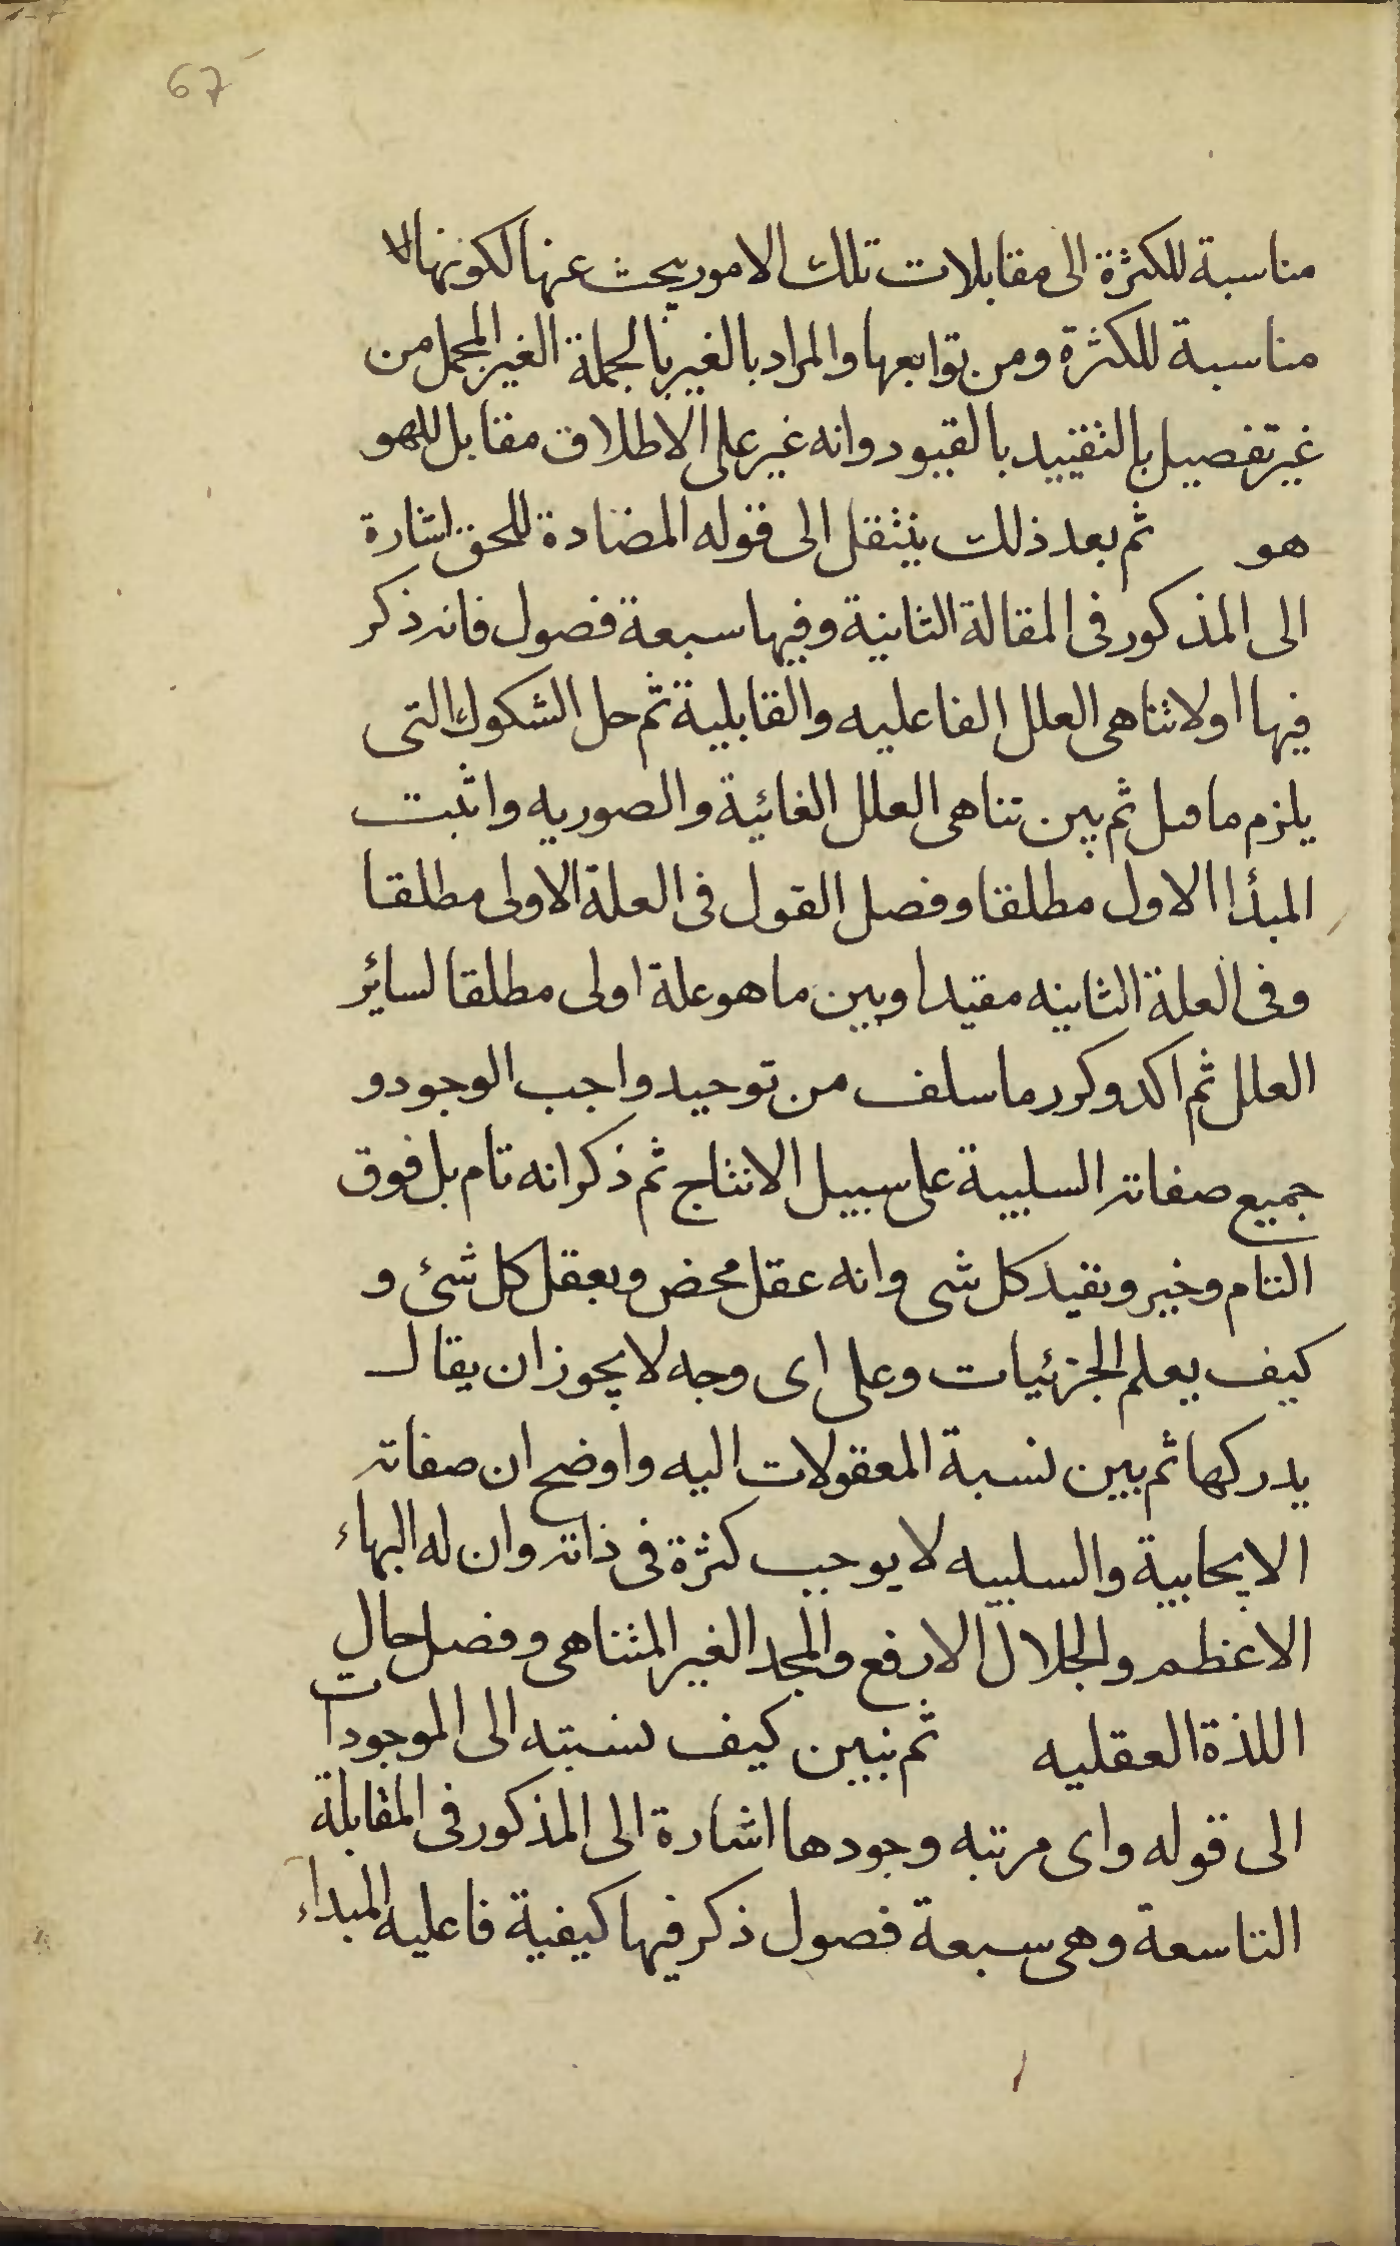 67
مناسبة للكثرة الى مقابلات تلك الامور يبحث عنها لكونها لا
مناسبة للكثرة ومن توابعها والمراد بالغير بالجملة الغير المجمل من
غير تفصيل بالتقييد بالقيود وانه غير على الاطلاق مقابل للهو
هو ثم بعد ذلك ينتقل الى قوله المضادة للحق اشارة
الى المذكور فى المقالة الثانية وفيها سبعة فصول فانه ذكر
فيها اولا تناهى العلل الفاعليه والقابلية ثم حل الشكوك التى
يلزم ما قبل ثم بين تناهى العلل الغائية والصوريه واثبت
المبدأ الاول مطلقا وفصل القول فى العلة الاولى مطلقا
وفى العلة الثانيه مقيدا وبين ما هو علة اولى مطلقا لسائر
العلل ثم اكد وكرر ما سلف من توحيد واجب الوجود و
جميع صفاته السلبية على سبيل الانتاج ثم ذكر انه تام بل فوق
التام وخير ويفيد كل شى وانه عقل محض ويعقل كل شئ و
كيف يعلم الجزئيات وعلى اى وجه لا يجوز ان يقال
يدركها ثم بين نسبة المعقولات اليه واوضح ان صفاته
الايجابية والسلبيه لا يوجب كثرة فى ذاته وان له البهاء
الاعظم والجلال الارفع والمجد الغير المتناهى وفصل حال
اللذة العقليه ثم نبين كيف نسبته الى الموجودات
الى قوله واى مرتبه وجودها اشارة الى المذكور فى المقابلة
التاسعة وهى سبعة فصول ذكر فيها كيفية فاعليه المبداء